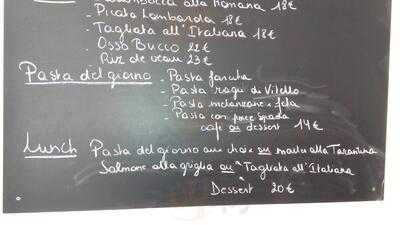 alla Romana 18€
- Picata Lombarda 18€
- Tagliata all'Italiana 18€
- Osso Bucco 22€
- Riz de veau 23€
Pasta del giorno - Pasta
- Pasta ragù di Vitello
- Pasta melanzane e feta
- Pasta con pesce spada
café ou dessert 14€
Lunch Pasta del giorno au choix ou moules alla Tarantina
Salmone alla griglia ou Tagliata all'Italiana
Dessert 20€